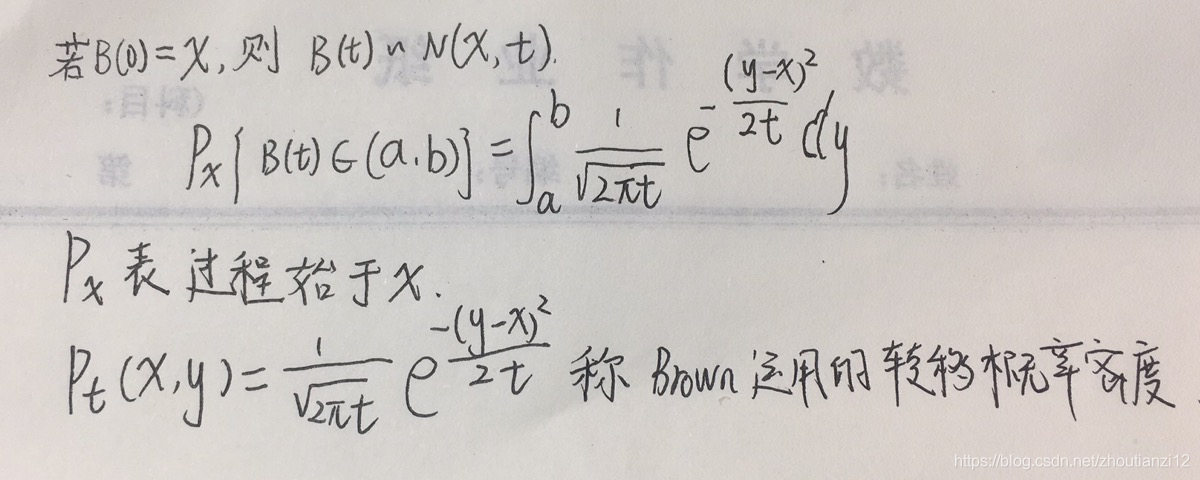 若B(0)=X,则 B(t)~N(X,t).
P_x{B(t)∈(a,b)}=∫_a^b \frac{1}{\sqrt{2πt}} e^{-\frac{(y-x)^2}{2t}}dy
P_x 表过程始于X.
P_t(X,y)=\frac{1}{\sqrt{2πt}} e^{\frac{-(y-x)^2}{2t}} 称 Brown 运用的转移概率密度
https://blog.csdn.net/zhoutianzi12